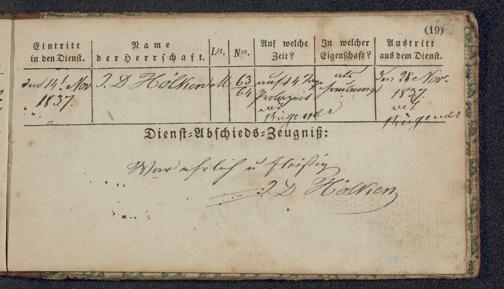 (19)
Eintritt in den Dienst. Name der Herrschaft. Lit. Nro. Auf welche Zeit? In welcher Eigenschaft? Austritt aus dem Dienst.
Den 14t Nov 1837. J. D Hölken M. 63 64 auf 14 Tag als Den 28t Nov. 1837
Dienst-Abschieds-Zeugniß:
War ehrlich u fleißig
J. D Hölken